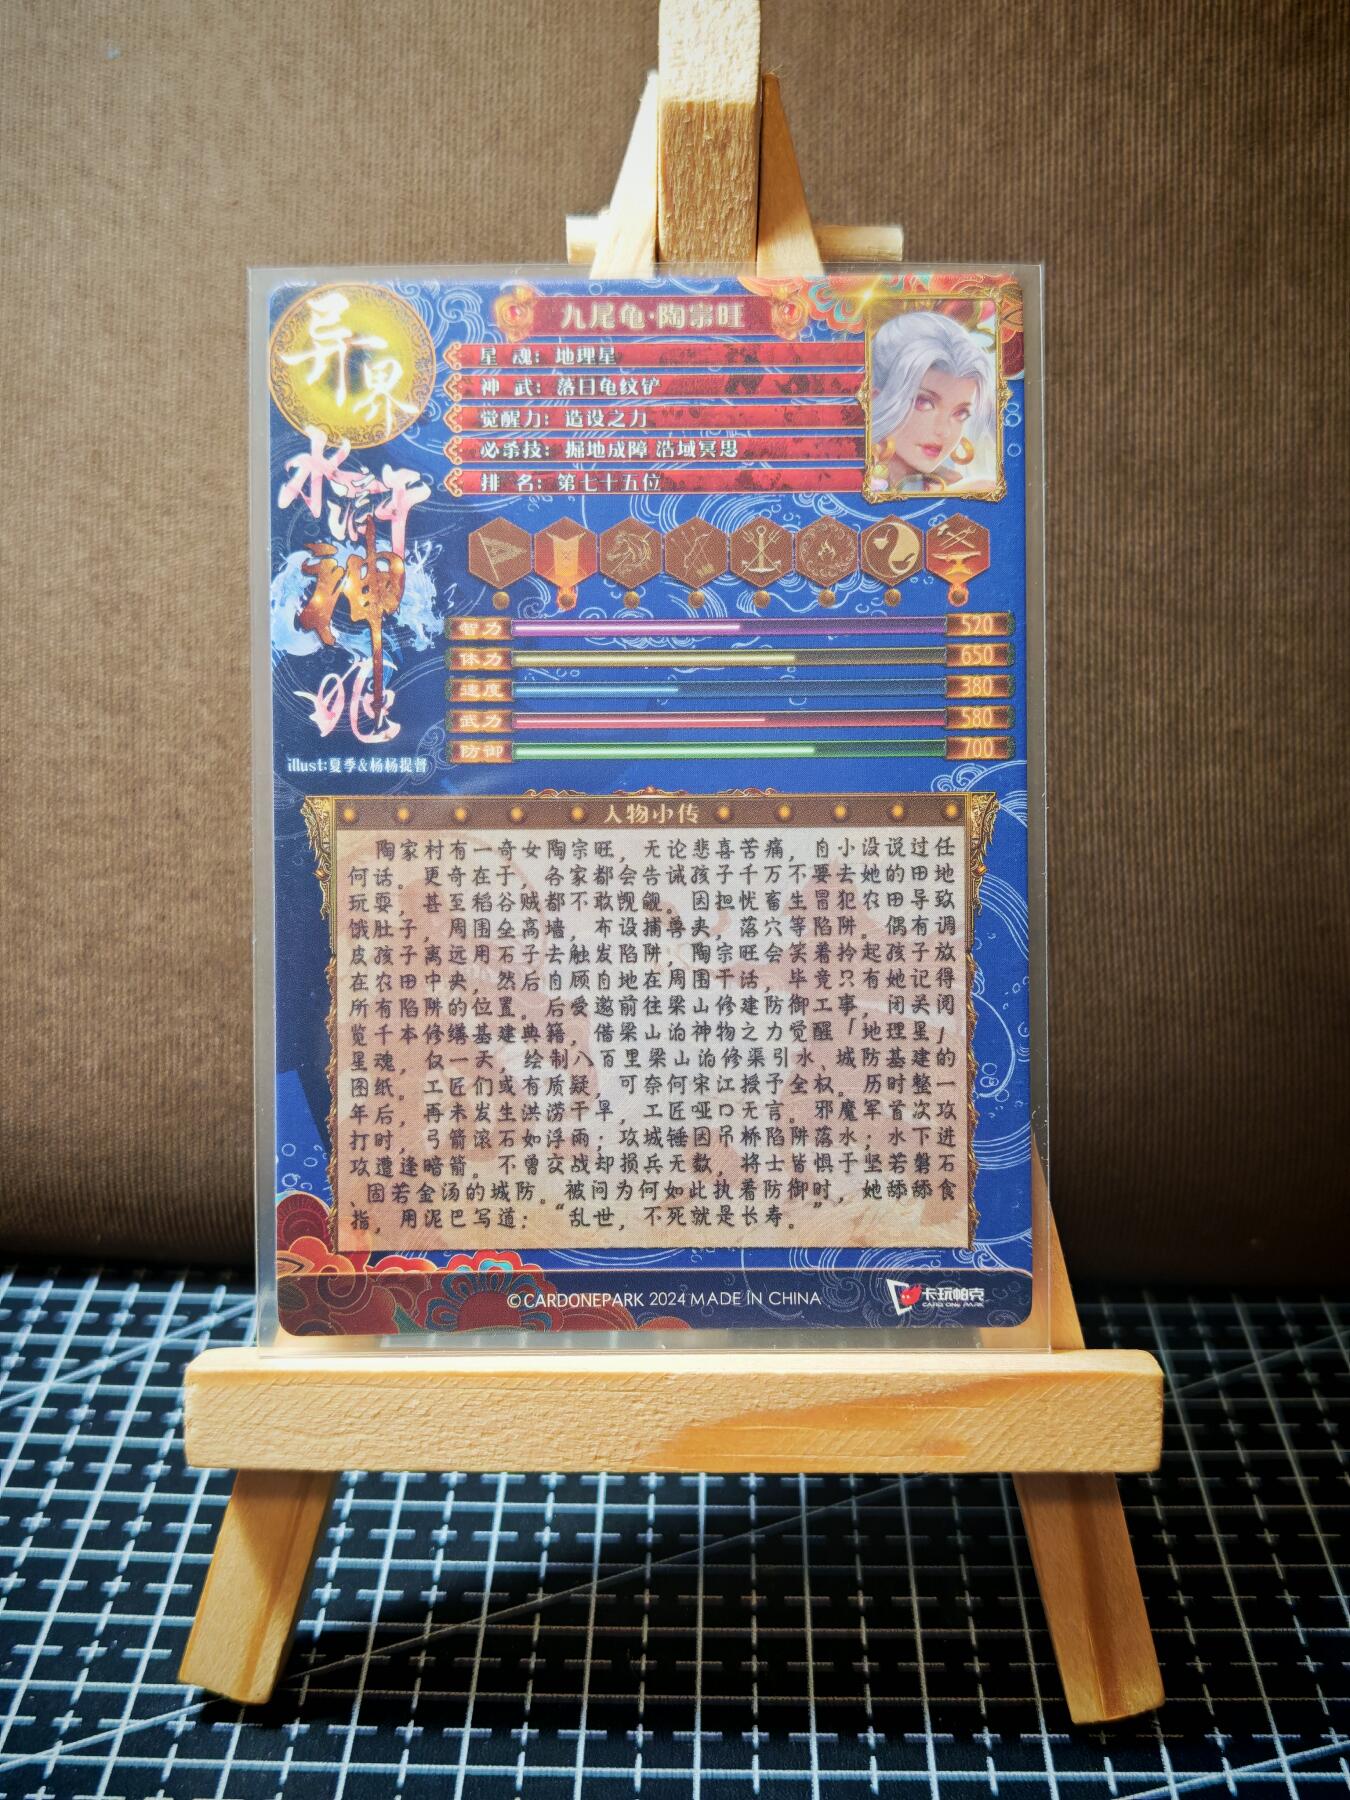 异界
水浒
神
兆
illust:夏季&杨杨提督
九尾龟·陶宗旺
星 魂：地理星
神 武：落日龟纹铲
觉醒力：造设之力
必杀技：掘地成障 浩域冥思
排 名：第七十五位
智力 520
体力 650
速度 380
武力 580
防御 700
人物小传
陶家村有一奇女陶宗旺，无论悲喜苦痛，自小没说过任
何话。更奇在于，各家都会告诫孩子千万不要去她的田地
玩耍，甚至稻谷贼都不敢觊觎。因担忧畜生冒犯农田导致
饿肚子，周围垒高墙，布设捕兽夹，落穴等陷阱。偶有调
皮孩子离远用石子去触发陷阱，陶宗旺会笑着拎起孩子放
在农田中央，然后自顾自地在周围干活，毕竟只有她记得
所有陷阱的位置。后受邀前往梁山修建防御工事，闭关阅
览千本修缮基建典籍，借梁山泊神物之力觉醒「地理星」
星魂，仅一天，绘制八百里梁山泊修渠引水、城防基建的
图纸。工匠们或有质疑，可奈何宋江授予全权。历时整一
年后，再未发生洪涝干旱，工匠哑口无言。邪魔军首次攻
打时，弓箭滚石如浮雨；攻城锤因吊桥陷阱落水；水下进
攻遭逢暗箭。不曾交战却损兵无数，将士皆惧于坚若磐石
、固若金汤的城防。被问为何如此执着防御时，她舔舔食
指，用泥巴写道：“乱世，不死就是长寿。”
©CARDONEPARK 2024 MADE IN CHINA
卡玩帕克
CARD ONE PARK